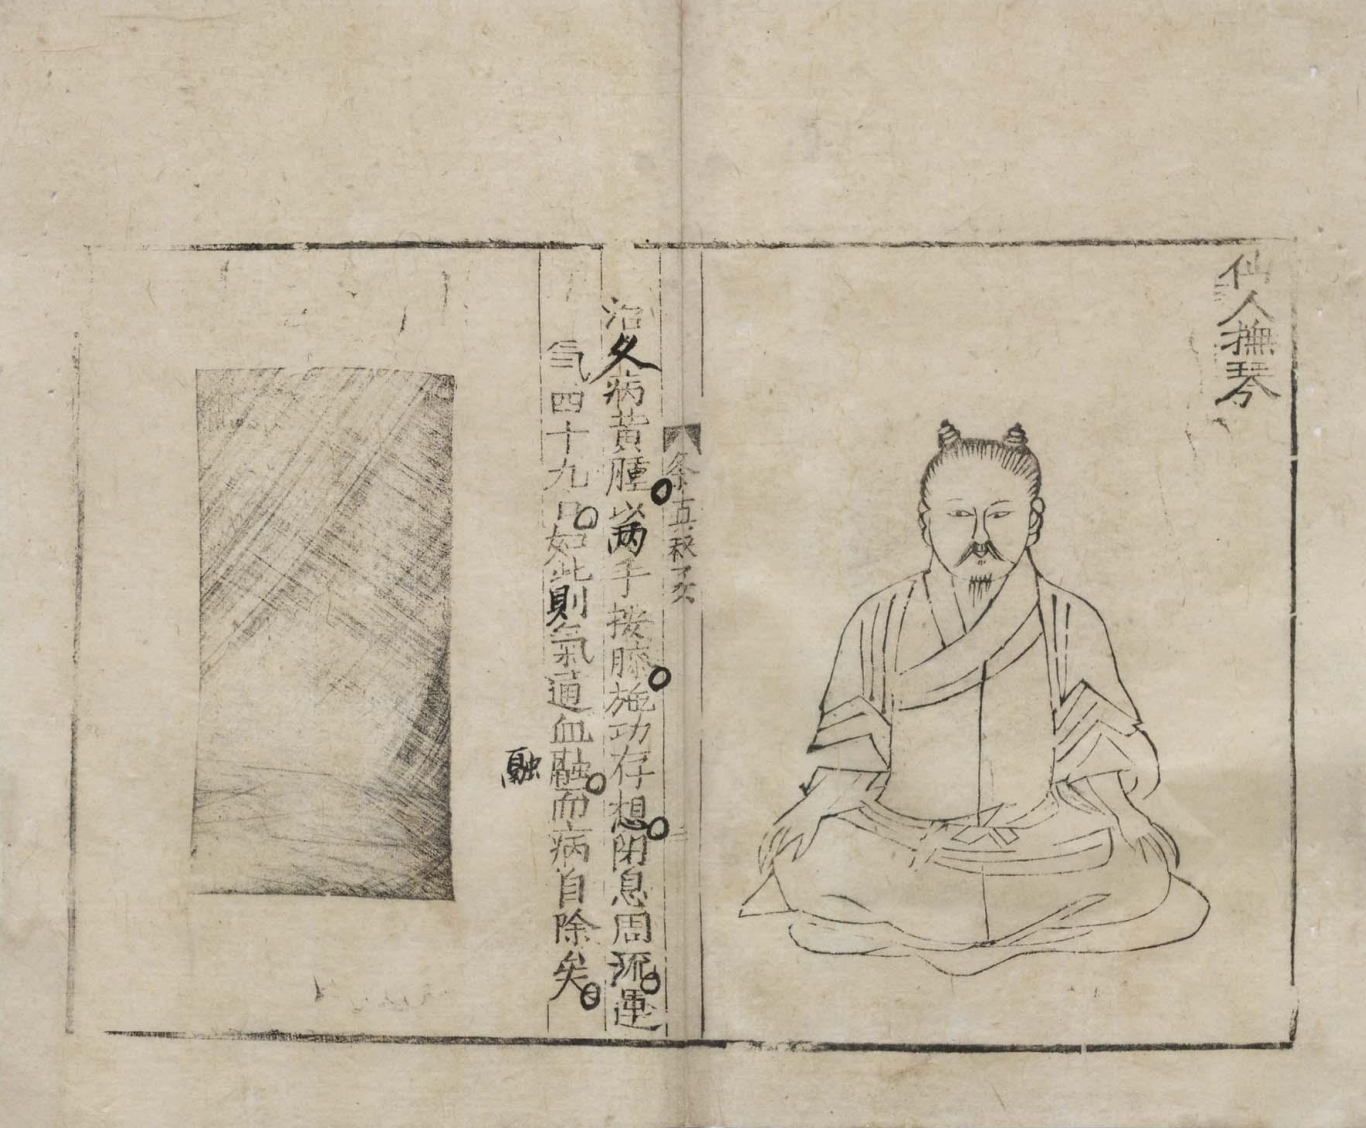 仙人撫琴
治久病黃腫以兩手按膝施功存想閉息周流運
氣四十九口如此則氣通血融而病自除矣
融